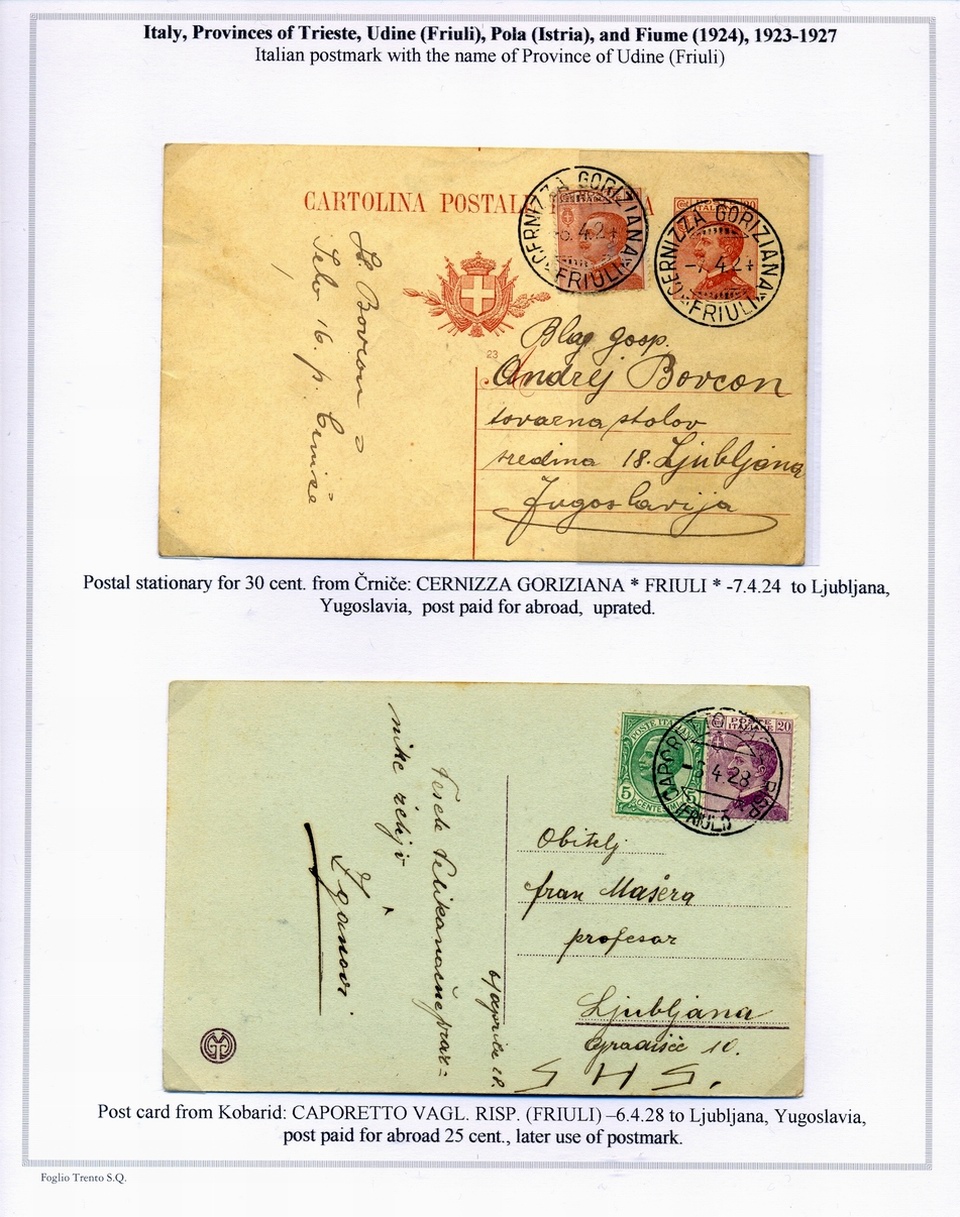 Italy, Provinces of Trieste, Udine (Friuli), Pola (Istria), and Fiume (1924), 1923-1927
Italian postmark with the name of Province of Udine (Friuli)
CARTOLINA POSTALE
CERNIZZA GORIZIANA
4.24
FRIULI
CERNIZZA GORIZIANA
-7.4.24
FRIULI
Bovcon
Selo 16. p.
23
Blag. gosp.
Andrej Bovcon
tovarna stolov
sredina 18. Ljubljana
Jugoslavija
Postal stationary for 30 cent. from Črniče: CERNIZZA GORIZIANA * FRIULI * -7.4.24 to Ljubljana,
Yugoslavia, post paid for abroad, uprated.
POSTE ITALIANE
5
CENTESIMI
POSTE
ITALIANE
20
4.28
(FRIULI)
Vesele Velikanočne praz=
nike želijo
6/aprila 28.
Obitelj
fran Mašera
profesor
Ljubljana
Gradišče 10.
S H S.
Post card from Kobarid: CAPORETTO VAGL. RISP. (FRIULI) –6.4.28 to Ljubljana, Yugoslavia,
post paid for abroad 25 cent., later use of postmark.
Foglio Trento S.Q.